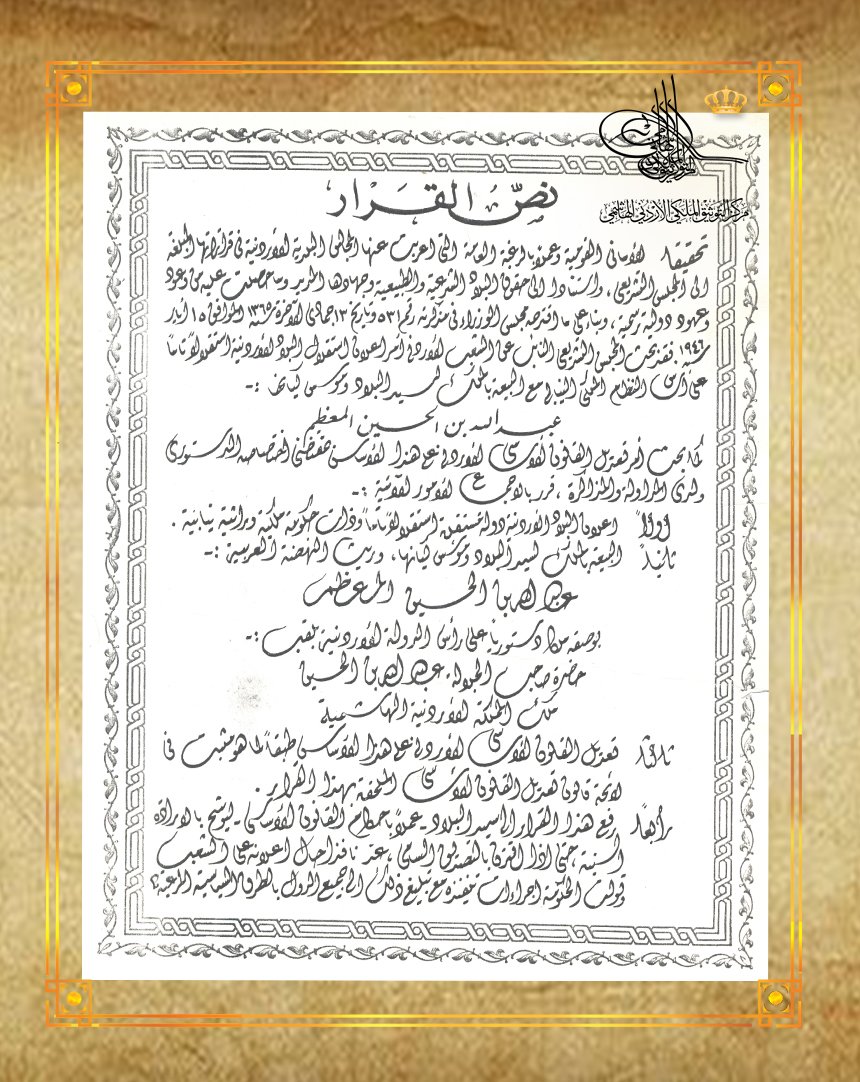 مركز التوثيق الملكي الأردني الهاشمي
نصّ القرار
تحقيقا للأماني القومية وعملا بالرغبة العامة التي أعربت عنها المجالس البلدية الأردنية في قراراتها المبلغة
الى المجلس التشريعي ، واستنادا الى حقوق البلاد الشرعية والطبيعية وجهادها المديد وما حصلت عليه من وعود
وعهود دولية رسمية ، وبناء على ما اقترحه مجلس الوزراء في مذكرته رقم ٥٣١ وتاريخ ١٣ جمادى الآخرة سنة ١٣٦٥ الموافق ١٥ أيار
سنة ١٩٤٦ فقد بحث المجلس التشريعي النائب عن الشعب الأردني أمر اعلان استقلال البلاد الأردنية استقلالاً تاماً
على أساس النظام الملكي النيابي مع البيعة بالملك لسيد البلاد ومؤسس كيانها :-
عبد الله بن الحسين المعظم
كما بحث أمر تعديل القانون الأساسي الأردني على هذا الأساس بمقتضى اختصاصه الدستوري
ولدى المداولة والمذاكرة ، قرر بالاجماع الأمور الآتية :-
أولاً اعلان البلاد الأردنية دولة مستقلة استقلالاً تاماً وذات حكومة ملكية وراثية نيابية .
ثانياً البيعة بالملك لسيد البلاد ومؤسس كيانها ، وريث النهضة العربية :-
عبد الله بن الحسين المعظم
بوصفه ملكا دستوريا على رأس الدولة الأردنية بلقب :-
حضرة صاحب الجلالة عبد الله بن الحسين
ملك المملكة الأردنية الهاشمية
ثالثاً تعديل القانون الأساسي الأردني على هذا الأساس طبقا لما هو مثبت في
لائحة قانون تعديل القانون الأساسي الملحقة بهذا القرار .
رابعاً رفع هذا القرار الى سيد البلاد - عملاً بأحكام القانون الأساسي - ليوشح بالارادة
السنية ، حتى اذا اقترن بالتصديق السامي ، عد نافذا حال اعلانه على الشعب
وتولت الحكومة اجراءات تنفيذه مع تبليغ ذلك الى جميع الدول بالطرق السياسية المرعية